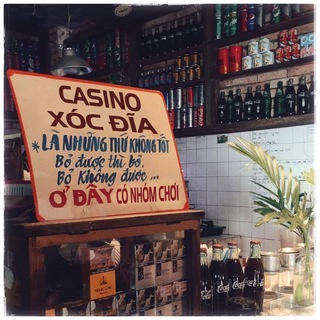 CASINO
XÓC ĐĨA
*LÀ NHỮNG THỨ KHÔNG TỐT
Bỏ được thì bỏ.
Bỏ không được ...
Ở ĐÂY CÓ NHÓM CHƠI
Coca-Cola